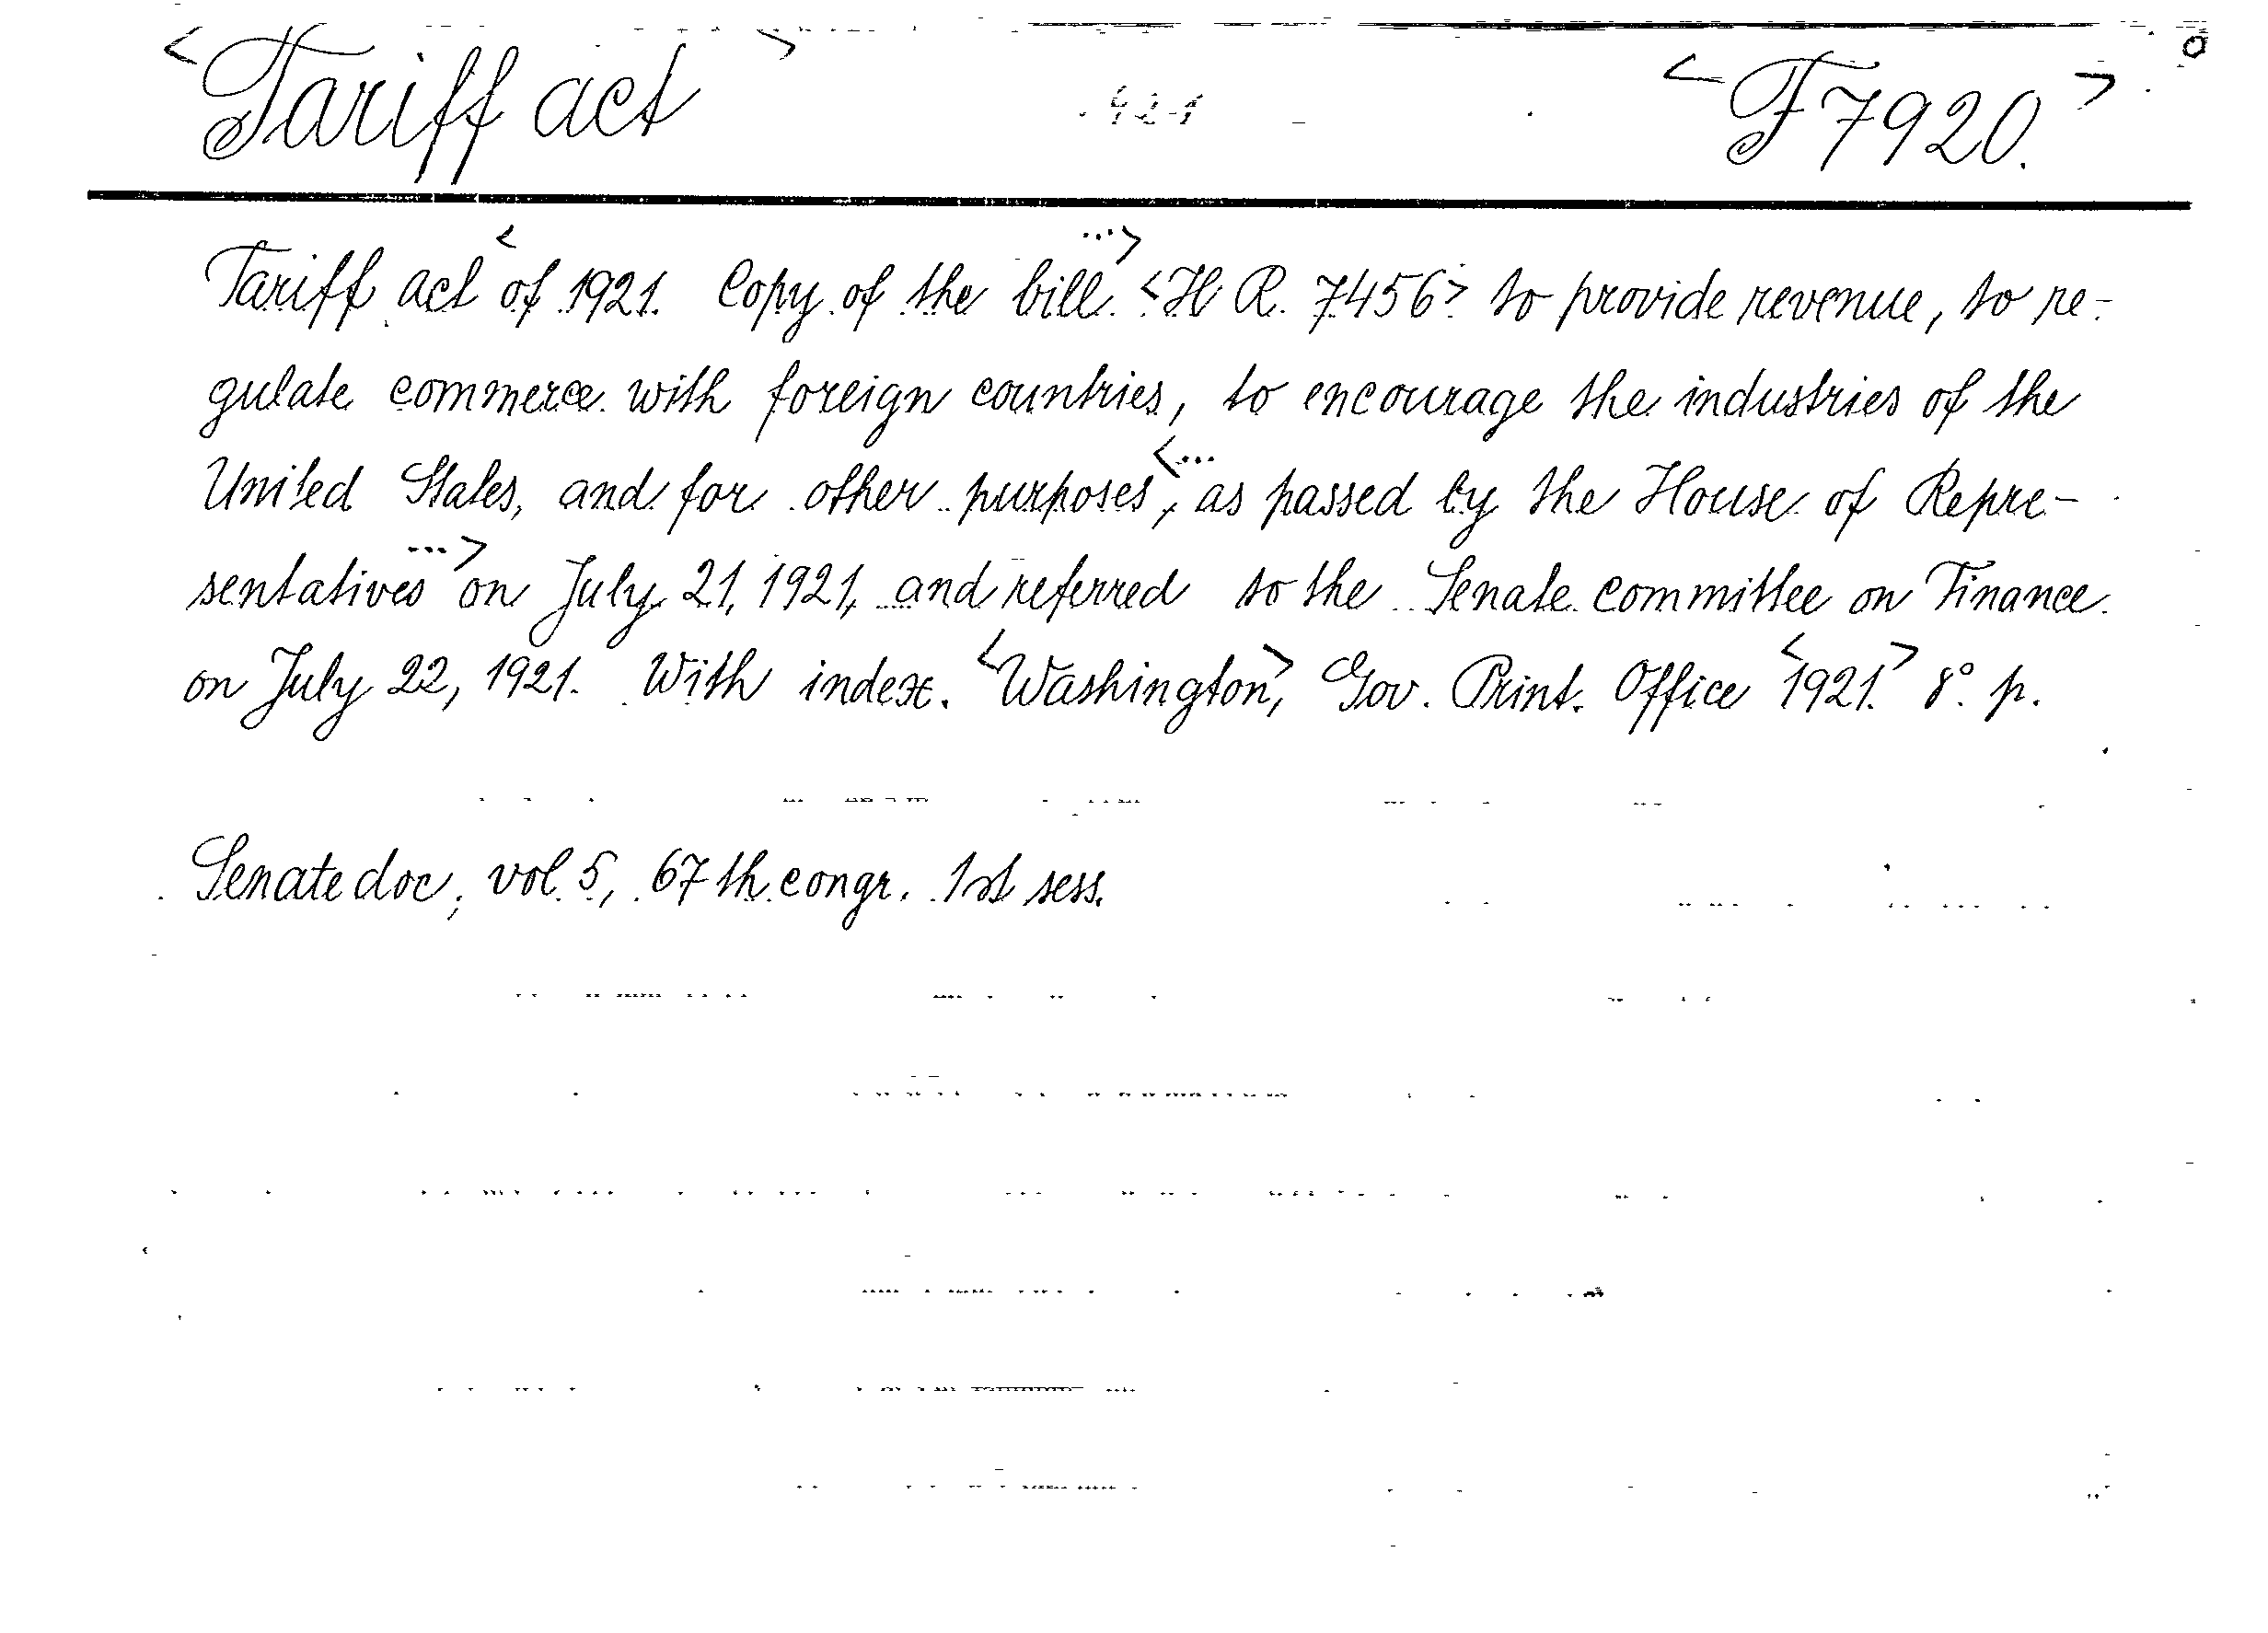 <Tariff act> 421 <F 7920.>
Tariff act <of 1921. Copy of the bill ...> <H R. 7456> to provide revenue, to re-
gulate commerce with foreign countries, to encourage the industries of the
United States, and for other purposes, <... as passed by the House of Repre-
sentatives ...> on July 21, 1921, and referred to the Senate committee on Finance
on July 22, 1921. With index. <Washington>, Gov. Print. Office <1921.> 8°. p.
Senate doc, vol. 5, 67th congr. 1st sess.